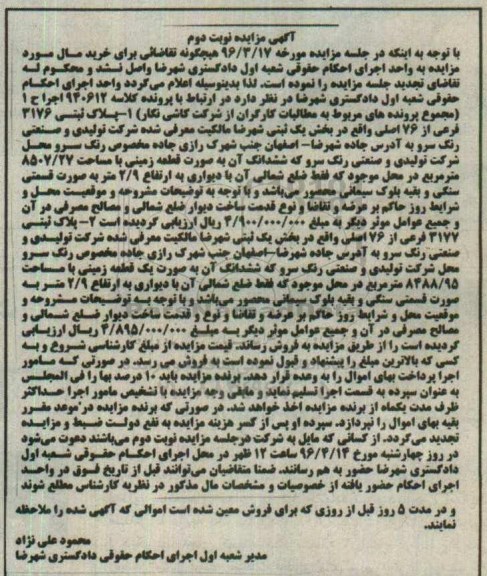 آگهی مزایده نوبت دوم
با توجه به اینکه در جلسه مزایده مورخه ۹۶/۳/۱۷ هیچگونه تقاضائی برای خرید مال مورد
مزایده به واحد اجرای احکام حقوقی شعبه اول دادگستری شهرضا واصل نشد و محکوم له
تقاضای تجدید جلسه مزایده را نموده است. لذا بدینوسیله اعلام می‌گردد واحد اجرا احکام
حقوقی شعبه اول دادگستری شهرضا در نظر دارد در ارتباط با پرونده کلاسه ۹۴۰۶۱۲ اجرا ح ۱
(مجموع پرونده های مربوط به مطالبات کارگران از شرکت کاشی نگار) ۱-پلاک ثبتی ۳۱۷۶
فرعی از ۷۶ اصلی واقع در بخش یک ثبتی شهرضا مالکیت معرفی شده شرکت تولیدی و صنعتی
رنگ سرو به آدرس جاده شهرضا- اصفهان جنب شهرک رازی جاده مخصوص رنگ سرو محل
شرکت تولیدی و صنعتی رنگ سرو که ششدانگ آن به صورت قطعه زمینی با مساحت ۸۵۰۷/۲۷
مترمربع در محل موجود که فقط ضلع شمالی آن با دیواری به ارتفاع ۲/۹ متر به صورت قسمتی
سنگی و بقیه بلوک سیمانی محصور می‌باشد. و با توجه به توضیحات مشروحه و موقعیت محل و
شرایط روز حاکم بر عرضه و تقاضا و نوع قدمت ساخت دیوار ضلع شمالی و مصالح مصرفی در آن
و جمیع عوامل موثر دیگر به مبلغ ۴/۹۰۰/۰۰۰/۰۰۰ ریال ارزیابی گردیده است ۲- پلاک ثبتی
۳۱۷۷ فرعی از ۷۶ اصلی واقع در بخش یک ثبتی شهرضا مالکیت معرفی شده شرکت تولیدی و
صنعتی رنگ سرو به آدرس جاده شهرضا-اصفهان جنب شهرک رازی جاده مخصوص رنگ سرو
محل شرکت تولیدی و صنعتی رنگ سرو که ششدانگ آن به صورت یک قطعه زمینی با مساحت
۸۴۸۸/۹۵ مترمربع در محل موجود که فقط ضلع شمالی آن با دیواری به ارتفاع ۲/۹ متر به
صورت قسمتی سنگی و بقیه بلوک سیمانی محصور می‌باشد و با توجه به توضیحات مشروحه و
موقعیت محل و شرایط روز حاکم بر عرضه و تقاضا و نوع و قدمت ساخت دیوار ضلع شمالی و
مصالح مصرفی در آن و جمیع عوامل موثر دیگر به مبلغ ۴/۸۹۵/۰۰۰/۰۰۰ ریال ارزیابی
گردیده است را از طریق مزایده به فروش رساند. قیمت مزایده از مبلغ کارشناسی شروع و به
کسی که بالاترین مبلغ را پیشنهاد و قبول نموده است به فروش می رسد. در صورتی که مامور
اجرا پرداخت بهای اموال را به وعده قرار دهد. برنده مزایده باید ۱۰ درصد بها را فی المجلس
به عنوان سپرده به قسمت اجرا تسلیم نماید و مابقی وجه مزایده با تشخیص مامور اجرا حداکثر
ظرف مدت یکماه از برنده مزایده اخذ خواهد شد. در صورتی که برنده مزایده در موعد مقرر
بقیه بهای اموال را نپردازد. سپرده او پس از کسر هزینه مزایده به نفع دولت ضبط و مزایده
تجدید می‌گردد. از کسانی که مایل به شرکت درجلسه مزایده نوبت دوم میباشند دعوت می‌شود
در روز چهارشنبه مورخ ۹۶/۴/۱۴ ساعت ۱۲ ظهر در محل اجرای احکام حقوقی شعبه اول
دادگستری شهرضا حضور به هم رسانند. ضمنا متقاضیان می‌توانند قبل از تاریخ فوق در واحد
اجرای احکام حضور یافته از خصوصیات و مشخصات مال مذکور در نظریه کارشناس مطلع شوند
و در مدت ۵ روز قبل از روزی که برای فروش معین شده است اموالی که آگهی شده را ملاحظه
نمایند.
محمود علی نژاد
مدیر شعبه اول اجرای احکام حقوقی دادگستری شهرضا